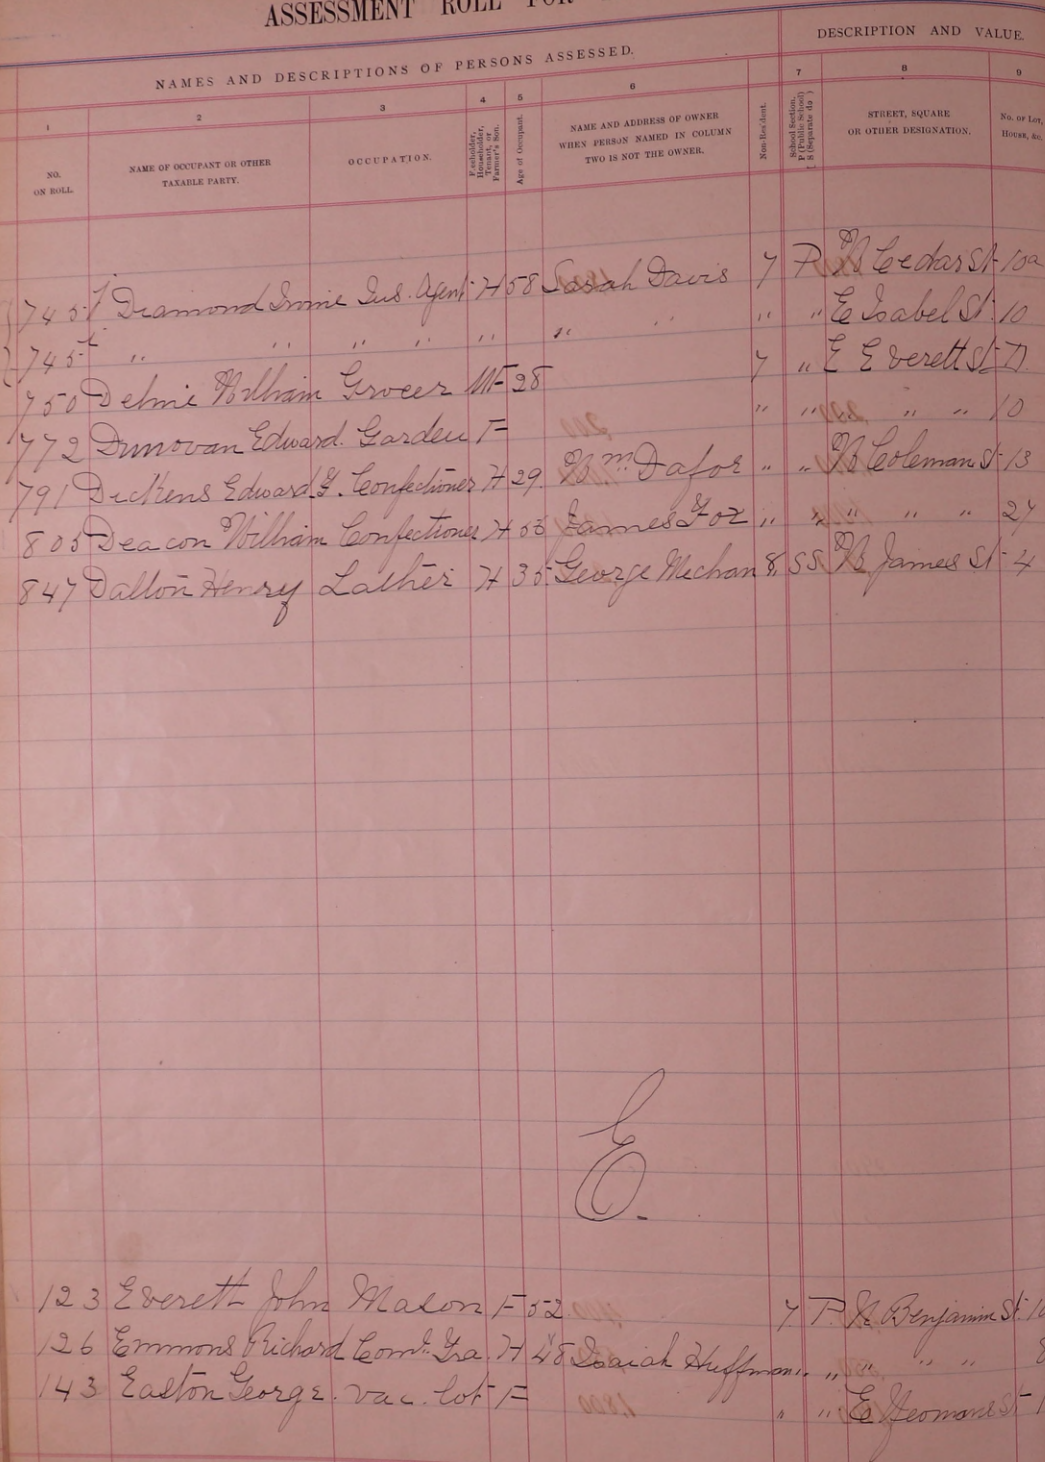 ASSESSMENT ROLL FOR
NAMES AND DESCRIPTIONS OF PERSONS ASSESSED.
DESCRIPTION AND VALUE.
1 2 3 4 5 6 7 8 9
NO. ON ROLL.
NAME OF OCCUPANT OR OTHER TAXABLE PARTY.
OCCUPATION.
Freeholder, Householder, Tenant, or Farmer's Son.
Age of Occupant.
NAME AND ADDRESS OF OWNER WHEN PERSON NAMED IN COLUMN TWO IS NOT THE OWNER.
Non-Resident.
School Section. P (Public School) S (Separate do )
STREET, SQUARE OR OTHER DESIGNATION.
No. of Lot, House, &c.
745 Diamond Irvine Ins. Agent H 58 Sarah Davis 7 P W Cedar St 10a
745 " " " " " " " " " E Isabel St 10
750 William Grocer MF 28 7 " E Everett St
772 Dunovan Edward. Garden F " " " " 10
791 Dickens Edward F. Confectioner H 29 Wm Dafoe " " W Coleman St 13
805 Deacon William Confectioner H 55 James Fox " " " " " 27
847 Dalton Henry Lather H 35 George Mechan 8 SS W James St 4
E.
123 Everett John Mason F 52 7 P. N Benjamin St
126 Emmons Richard Coml. Tra H 48 Isaiah Huffman " " " " "
143 Easton George. Vac. Lot F " " E Yeomans St